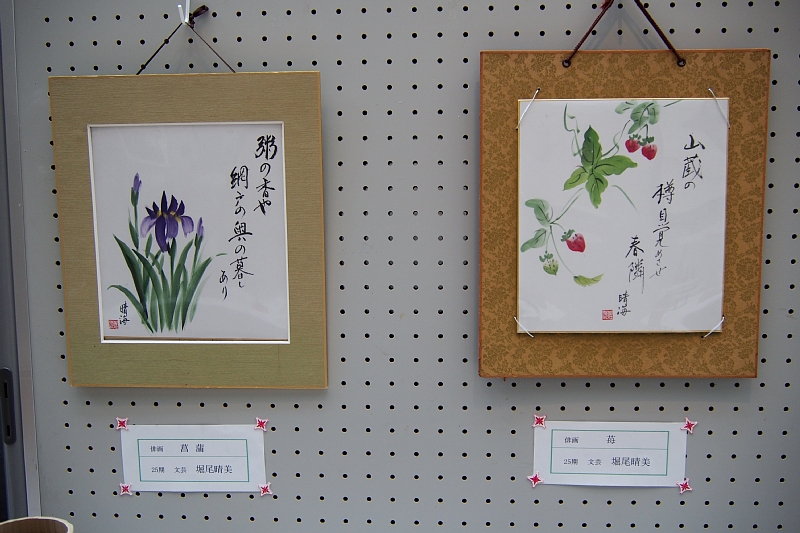 粥の香や
網戸の奥の暮し
あり
晴海
俳画 菖蒲
25期 文芸 堀尾晴美
山蔵の
樽目覚めさせ
春隣
晴海
俳画 苺
25期 文芸 堀尾晴美